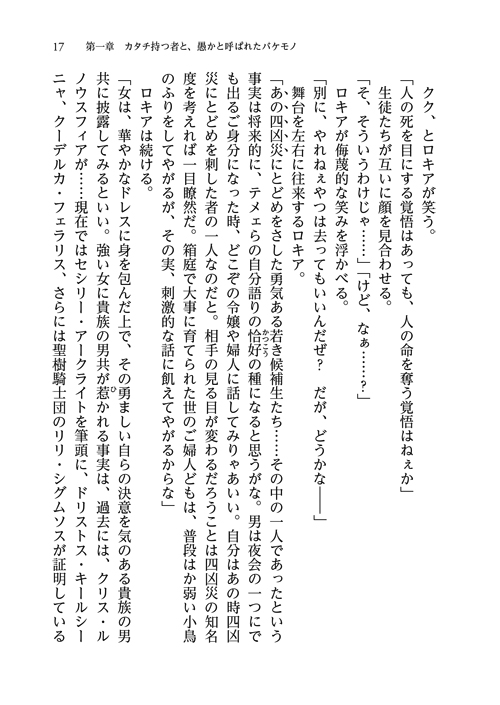 17　第一章　カタチ持つ者と、愚かと呼ばれたバケモノ
　クク、とロキアが笑う。
「人の死を目にする覚悟はあっても、人の命を奪う覚悟はねぇか」
　生徒たちが互いに顔を見合わせる。
「そ、そういうわけじゃ……」「けど、なぁ……？」
　ロキアが侮蔑的な笑みを浮かべる。
「別に、やれねぇやつは去ってもいいんだぜ？　だが、どうかな――」
　舞台を左右に往来するロキア。
「あの四凶災にとどめをさした勇気ある若き候補生たち……その中の一人であったという
事実は将来的に、テメェらの自分語りの恰好の種になると思うがな。男は夜会の一つにで
も出るご身分になった時、どこぞの令嬢や婦人に話してみりゃあいい。自分はあの時四凶
災にとどめを刺した者の一人なのだと。相手の見る目が変わるだろうことは四凶災の知名
度を考えれば一目瞭然だ。箱庭で大事に育てられた世のご婦人どもは、普段はか弱い小鳥
のふりをしてやがるが、その実、刺激的な話に飢えてやがるからな」
　ロキアは続ける。
「女は、華やかなドレスに身を包んだ上で、その勇ましい自らの決意を気のある貴族の男
共に披露してみるといい。強い女に貴族の男共が惹かれる事実は、過去には、クリス・ル
ノウスフィアが……現在ではセシリー・アークライトを筆頭に、ドリストス・キールシー
ニャ、クーデルカ・フェラリス、さらには聖樹騎士団のリリ・シグムソスが証明している